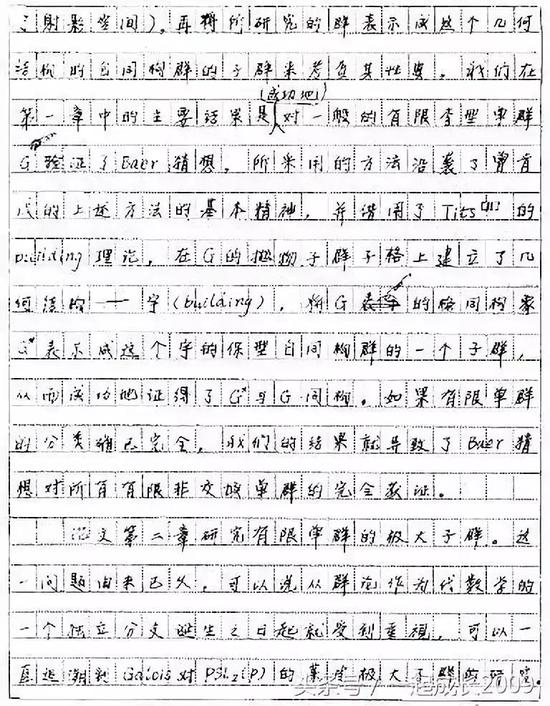 (射影空间),再将所研究的群表示成这个几何
结构的自同构群的子群来考查其性质。我们在
第一章中的主要结果是(成功地)对一般的有限李型单群
G验证了Baer猜想,所采用的方法沿袭了曾肯
成的上述方法的基本精神,并借用了Tits的
building理论,在G的抛物子群子格上建立了几
何结构——宇(building),将G的格同构象
G*表示成这个宇的保型自同构群的一个子群,
从而成功地证得了G*与G同构。如果有限单群
的分类确已完全,我们的结果就导致了Baer猜
想对所有有限非交换单群的完全获证。
论文第二章研究有限单群的极大子群。这
一问题由来已久,可以说从群论作为代数学的
一个独立分支诞生之日起就受到重视,可以一
直追溯到Galois对PSL2(P)的某些极大子群的研究。
头条号/一起成长2009